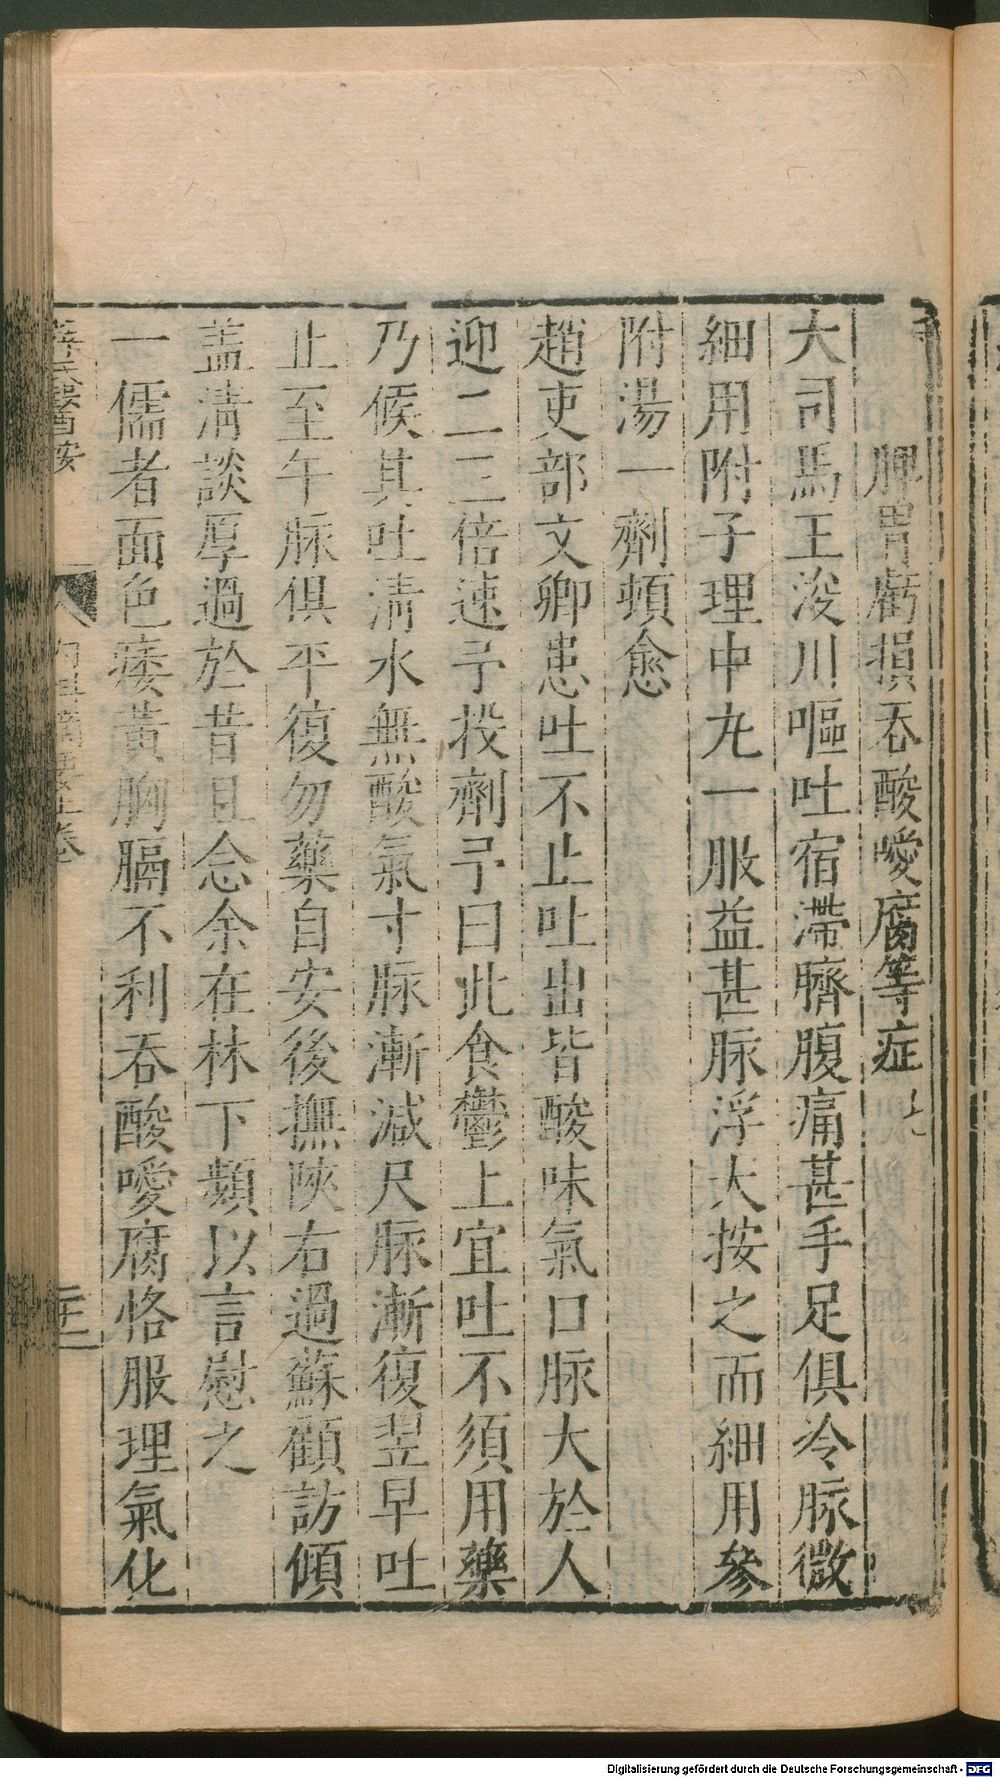 脾胃虧損吞酸噯腐等症 七
大司馬王浚川嘔吐宿滯臍腹痛甚手足俱冷脉微
細用附子理中丸一服益甚脉浮大按之而細用參
附湯一劑頓愈
趙吏部文卿患吐不止吐出皆酸味氣口脉大於人
迎二三倍速予投劑予曰此食鬱上宜吐不須用藥
乃候其吐淸水無酸氣寸脉漸减尺脉漸復翌早吐
止至午脉俱平復勿藥自安後撫陝右過蘇顧訪傾
盖淸談厚過於昔且念余在林下頻以言慰之
一儒者面色痿黃胸膈不利吞酸噯腐恪服理氣化
薛氏醫按 八 內科摘要上卷 二十一
Digitalisierung gefördert durch die Deutsche Forschungsgemeinschaft - DFG